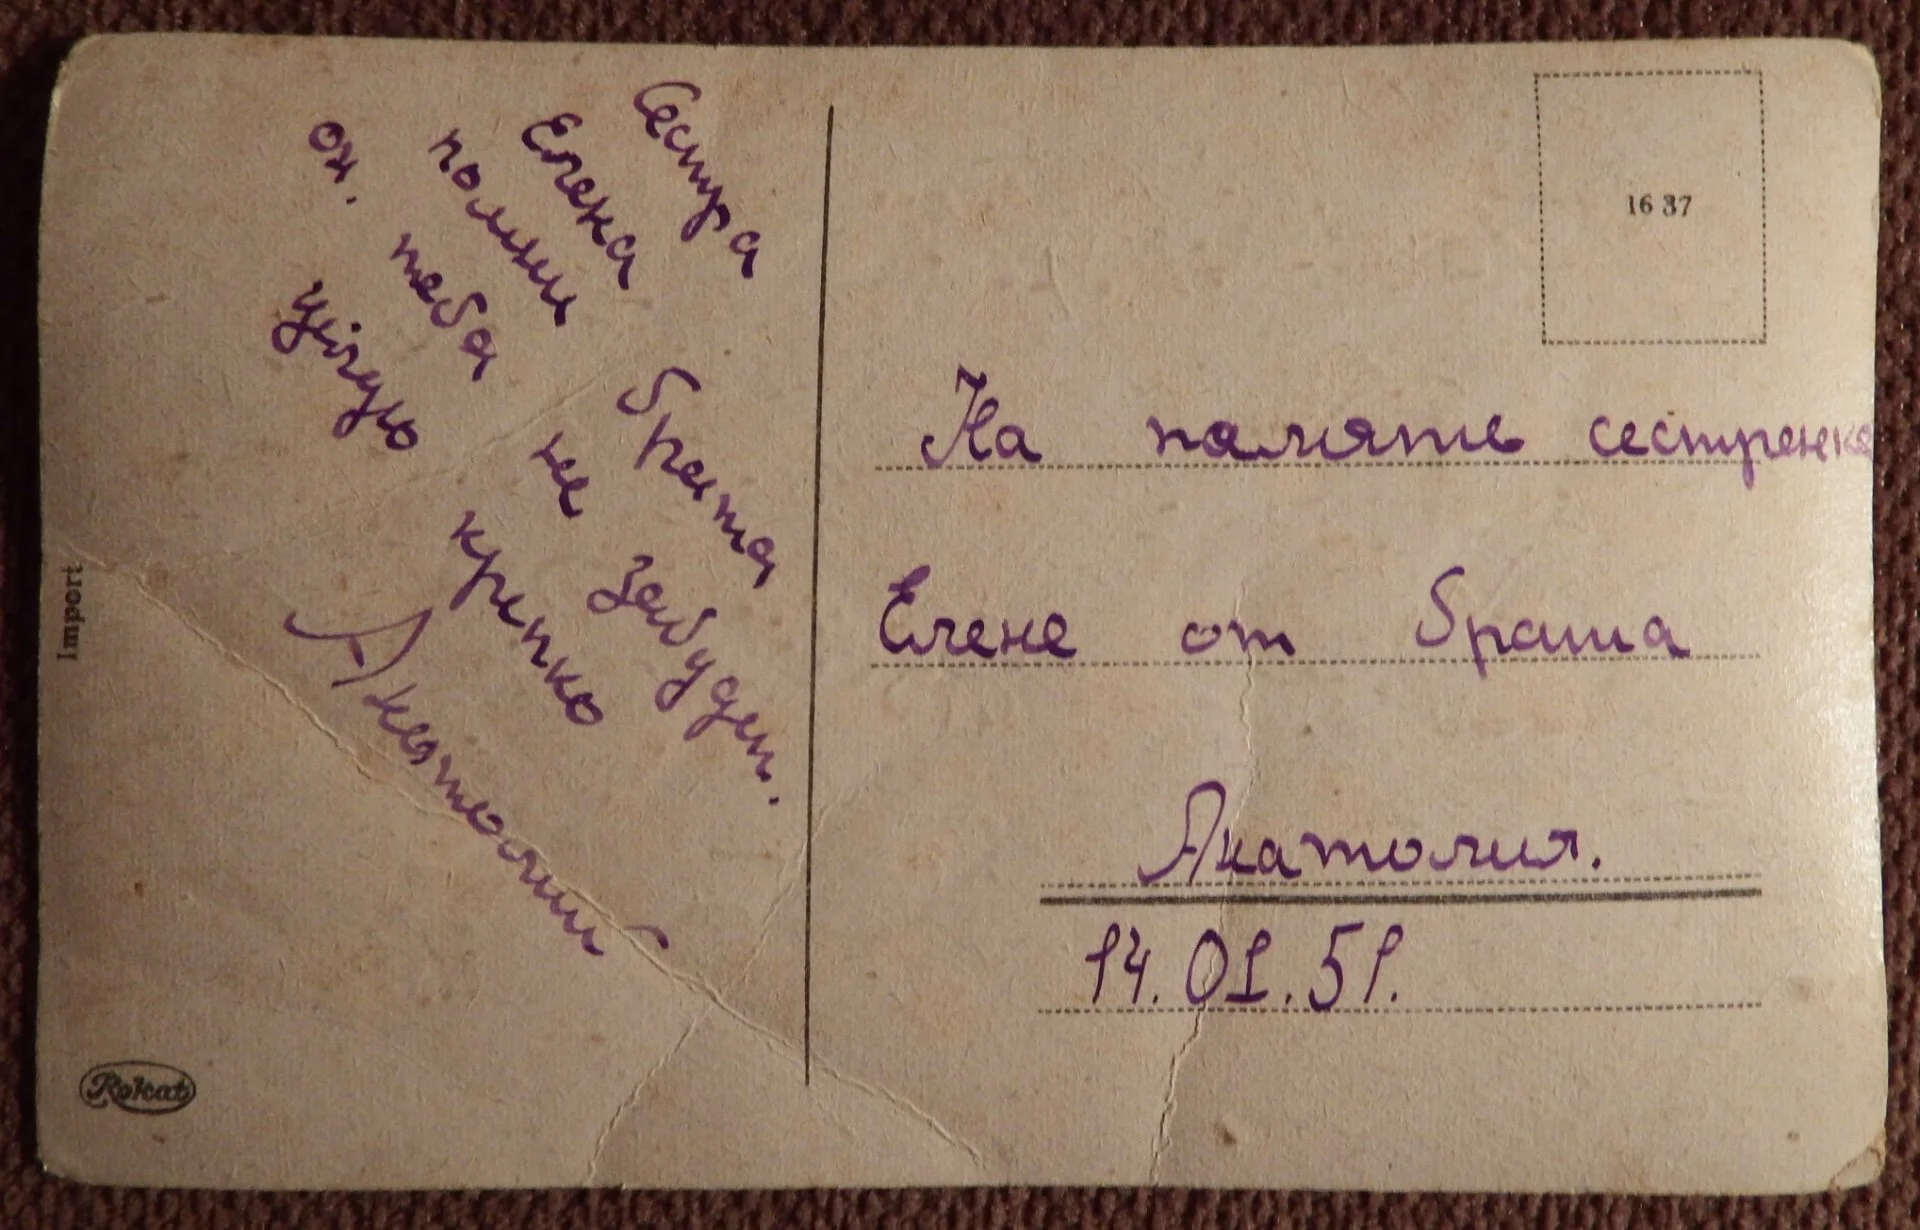 Сестра
Елена брата
помни не забудеш.
он. тебя крепко
цілую Анатолий
Import
Rokat
16 37
На память сестренке
Елене от брата
Анатолия.
14.01.51.